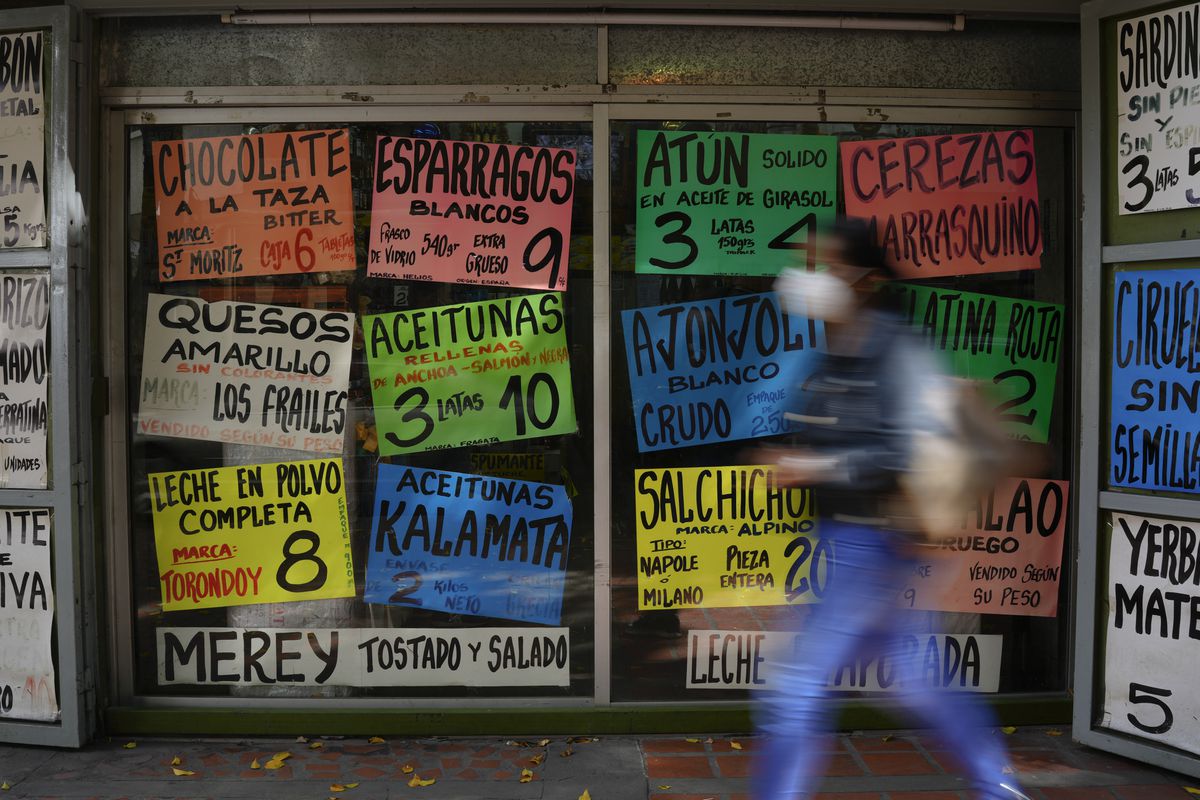 CHOCOLATE
A LA TAZA
BITTER
MARCA:
St MORITZ
CAJA 6 TABLETAS
ESPÁRRAGOS
BLANCOS
FRASCO
DE VIDRIO
540gr
EXTRA
GRUESO
9
MARCA: HELIOS
ORIGEN ESPAÑA
QUESOS
AMARILLO
SIN COLORANTES
MARCA: LOS FRAILES
VENDIDO SEGÚN SU PESO
ACEITUNAS
RELLENAS
DE ANCHOA - SALMÓN Y NEGRA
3 LATAS 10
MARCA: FRAGATA
LECHE EN POLVO
COMPLETA
MARCA:
TORONDOY
8
SPUMANTE
ACEITUNAS
KALAMATA
ENVASE
2 Kilos
NETO
GRECIA
MEREY TOSTADO Y SALADO
ATÚN SOLIDO
EN ACEITE DE GIRASOL
3 LATAS 4
CEREZAS
MARRASQUINO
AJONJOLI
BLANCO
CRUDO
EMPAQUE
DE
LATINA ROJA
2
SALCHICHO
MARCA: ALPINO
TIPO:
NAPOLE
Ó
MILANO
PIEZA
ENTERA
20
ALAO
RUEGO
VENDIDO SEGÚN
SU PESO
LECHE ADA
SARDIN
SIN PIE
Y
SIN ESP
3 LATAS 5
CIRUEL
SIN
SEMILL
YERB
MATE
5
BÓN
ETAL
LIA
5
RIZO
MADO
RRATINA
QUE
UNIDADES
ITE
E
IVA